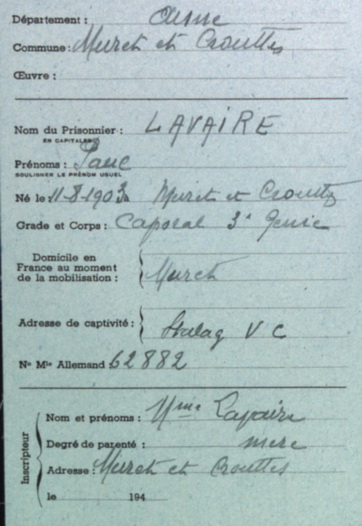 Département : Aisne
Commune : Muret et Crouttes
Œuvre :
Nom du Prisonnier : LAVAIRE
EN CAPITALES
Prénoms : Paul
SOULIGNER LE PRÉNOM USUEL
Né le 11-8-1903 à Muret et Crouttes
Grade et Corps : Caporal 3e Génie
Domicile en
France au moment
de la mobilisation : Muret
Adresse de captivité : Stalag V C
No Mle Allemand 62882
Inscripteur
Nom et prénoms : Mme Lavaire
Degré de parenté : mère
Adresse : Muret et Crouttes
le 194